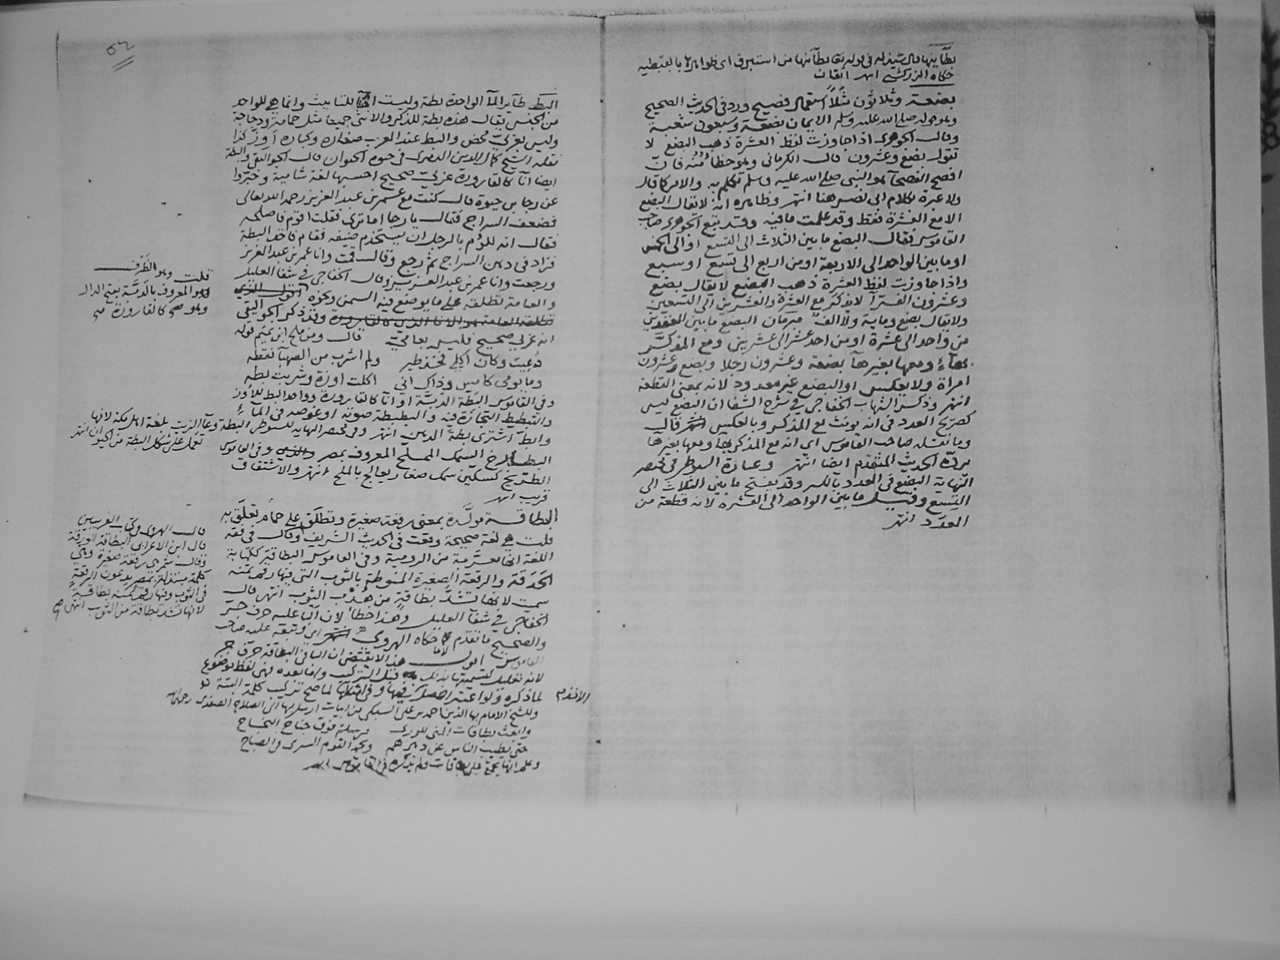 بطآينها قال شيذله في قوله تعالى بطآئنها من استبرق اي ظواهرها بالقبطية
حكاه الزركشي انتهى اتقان
بضعة وثلاثون مثلا استعمال فصيح ورد في الحديث الصحيح
وهو قوله صلى الله عليه وسلم الايمان بضعة وسبعون شعبة
وقال الجوهري اذا جاوزت لفظ العشرة ذهب البضع لا
تقول بضع وعشرون قال الكرماني وهو خطأ منه فان
افصح الفصحآ هو النبي صلى الله عليه وسلم تكلم به والامر كما قال
ولا عبرة بكلام الى نصر هنا انتهى وظاهره انه لا يقال البضع
الا مع العشرة فقط وقد علمت ما فيه وقد يتبع الجوهري صاحب
القاموس فقال البضع ما بين الثلاث الى التسع او الى الخمس
او ما بين الواحد الى الاربعة او من اربع الى تسع او سبع
واذا جاوزت لفظ العشرة ذهب البضع لا يقال بضع
وعشرون الفرآ لا يذكر مع العشرة والعشرين الى التسعين
ولا يقال بضع وماية ولا الف مبرمان البضع ما بين العقدين
من واحد الى عشرة او من احد عشر الى عشرين ومع المذكر
بهآء ومعها بغيرهآ بضعة وعشرون رجلا وبضع وعشرون
امراة ولا يعكس او البضع غير معدود لانه بمعنى القطعة
انتهى وذكر الشهاب الخفاجي في شرح الشفا ان البضع ليس
كصريح العدد في انه يونث مع المذكر وبالعكس قال
وما نقله صاحب القاموس اي انه مع المذكر بها ومعها بغيرها
يرده الحديث المتقدم ايضا انتهى وعبارة السيوطي في مختصر
النهاية البضع في العدد بالكسر وقد يفتح ما بين الثلاث الى
التسع وقيل ما بين الواحد الى العشرة لانه قطعة من
العدد انتهى
٥٢
البط طآير المآ الواحدة بطة وليست الهآ للتانيث وانما هي للواحد
من الجنس يقال هذه بطة للذكر والانثى جميعا مثل حمامة ودجاجة
وليس بعربي محض والبط عند العرب صغاره وكباره اوز كذا
نقله الشيخ كمال الدين الدميري في حيوة الحيوان قال الجواليقي والبطة
ايضا انآ كالقارورة عربي صحيح احسبها لغة شامية وخبروا
عن رجا بن حيوة قال كنت مع عمر بن عبد العزيز رحمه الله تعالى
فضعف السراج فقال يا رجا اما ترى فقلت اقوم فاصلحه
فقال انه للؤم بالرجل ان يستخدم ضيفه فقام فاخذ البطة
فزاد في دهن السراج ثم رجع وقال قمت وانا عمر بن عبد العزيز
ورجعت وانا عمر بن عبد العزيز وقال الخفاجي في شفا العليل
والعامة تطلقه على ما يوضع فيه السمن ونحوه
وقد ذكر الجواليقي
انه عربي صحيح فليس بعامي قال ومن ملح ابن تميم قوله
دُعيت وكان اكلي فخذ طير ولم اشرب من الصهبا نقطه
وما يومي كامس وذاك اني اكلت اوزة وشربت بطه
وفي القاموس البطة الدبة او انآ كالقارورة وواحد البط للاوز
والتبطيط التجارة فيه والبطبطة صوته او غوصه في المآء
وابط اشترى بطة الدهن انتهى وفي مختصر النهاية للسيوطي البطة وعآ الزيت بلغة اهل مكة لانها
تعمل على شكل البطة من الحيوان انتهى
قلت وهو الظرف
المعروف بالدبة بفتح الدال
وهو صح كالقارورة
البطارخ السمك المملح المعروف بمصر وفي القاموس
الطريخ كسكين سمك صغار يعالج بالملح انتهى والاشتقاق
قريب انتهى
البطاقة مولدة بمعنى رقعة صغيرة وتطلق على حمام تعلق به
قلت هي لغة صحيحة وقعت في الحديث الشريف وقال في فقه
اللغة انها معربة من الرومية وفي القاموس البطاقة ككتابة
الحدقة والرقعة الصغيرة المنوطة بالثوب التي فيها رقم ثمنه
سميت لانها تشد بطاقة من هدب الثوب انتهى قال
الخفاجي في شفآ العليل وهذا خطأ لان البآ عليه حرف جر
والصحيح ما تقدم كما حكاه الهروي اي وتبعه عليه صاحب
القاموس اقول هذا لا يقتضي ان البآ في البطاقة حرف جر
لما ذكره
وللشيخ الامام بهآ الدين احمد بن علي السبكي من ابيات ارسلها الى الصلاح الصفدي رحمه الله
قال الهروي في كتاب الغريبين
قال ابن الاعرابي البطاقة الورقة
وقال شمر هي رقعة صغيرة وهي
كلمة مبتذلة بمصر يدعون الرقعة
في الثوب وفيها رقم ثمنه بطاقة
لانها تشد بطاقة من الثوب انتهى صح